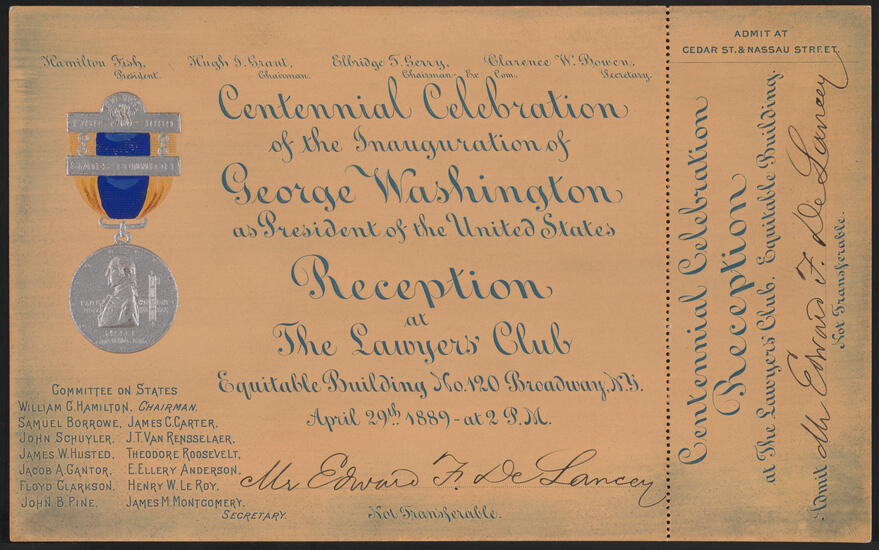 Hamilton Fish, Hugh J. Grant, Elbridge T. Gerry, Clarence W. Bowen,
President. Chairman. Chairman Ex Com. Secretary.
Centennial Celebration
of the Inauguration of
George Washington
as President of the United States
Reception
at
The Lawyers' Club
Equitable Building No. 120 Broadway, N.Y.
April 29th 1889 - at 2 P.M.
Mr Edward F. De Lancey
Not Transferable.
COMMITTEE ON STATES
WILLIAM G. HAMILTON, CHAIRMAN.
SAMUEL BORROWE, JAMES C. CARTER.
JOHN SCHUYLER. J. T. VAN RENSSELAER.
JAMES W. HUSTED. THEODORE ROOSEVELT.
JACOB A. CANTOR. E. ELLERY ANDERSON.
FLOYD CLARKSON. HENRY W. LE ROY.
JOHN B. PINE. JAMES M. MONTGOMERY.
SECRETARY.
ADMIT AT
CEDAR ST. & NASSAU STREET.
Centennial Celebration
Reception
at The Lawyers' Club. Equitable Building.
Admit Mr Edward F. De Lancey
Not Transferable.